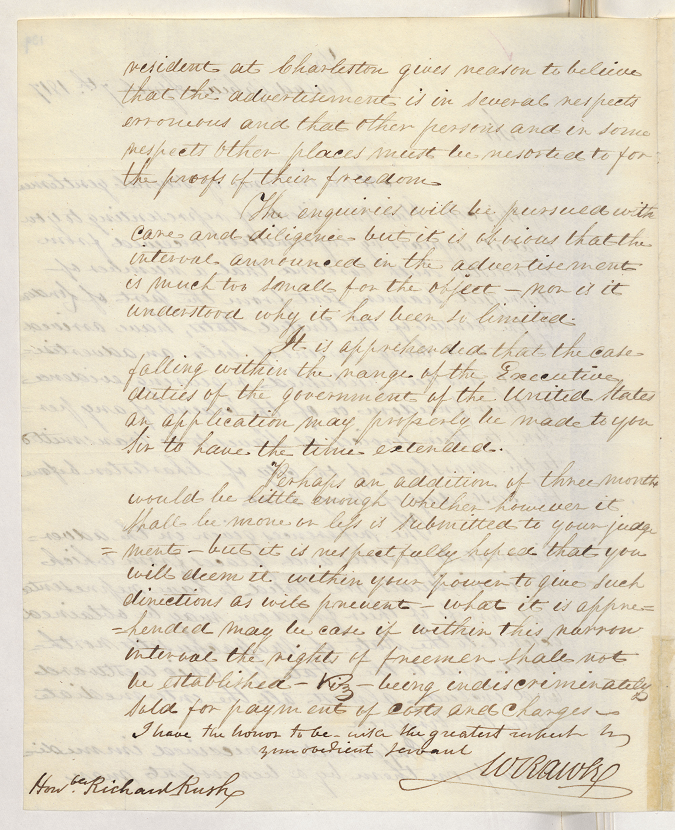 resident at Charleston gives reason to believe
that the advertisement is in several respects
erroneous and that other persons and in some
respects other places must be resorted to for
the proofs of their freedom
The enquiries will be pursued with
care and diligence but it is obvious that the
interval announced in the advertisement
is much too small for the object – nor is it
understood why it has been so limited.
It is apprehended that the case
falling within the range of the Executive
duties of the government of the United States
an application may properly be made to you
Sir to have the time extended.
Perhaps an addition of three months
would be little enough whether however it
shall be more or less is submitted to your judge
= ment – but it is respectfully hoped that you
will deem it within your power to give such
directions as will prevent – what it is appre=
=hended may be case if within this narrow
interval the rights of freemen shall not
be established – Viz – being indiscriminately
sold for payment of costs and charges –
I have the honor to be with the greatest respect
your obedient servant
W Rawle
Honble Richard Rush